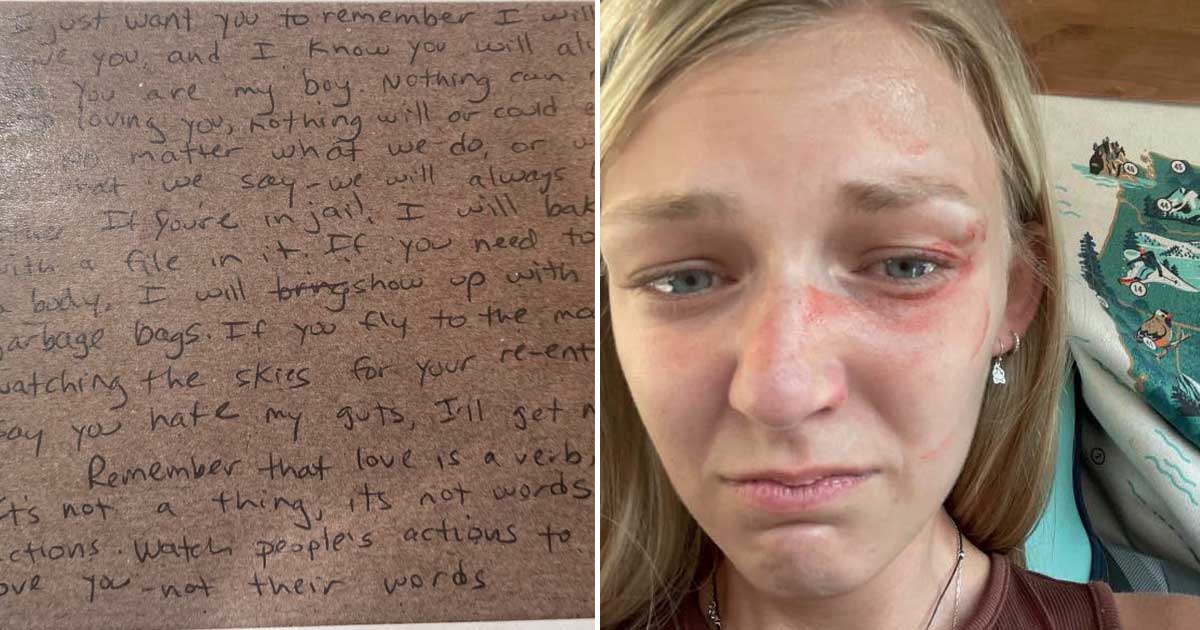 I just want you to remember I will
you, and I know you will al
You are my boy. Nothing can
loving you, nothing will or could
no matter what we do, or
what we say - we will always
If you're in jail, I will bak
with a file in it. If you need to
body, I will show up with
garbage bags. If you fly to the
watching the skies for your re-ent
say you hate my guts, I'll get
Remember that love is a verb,
it's not a thing, its not words
ctions. Watch people's actions to
ove you - not their words